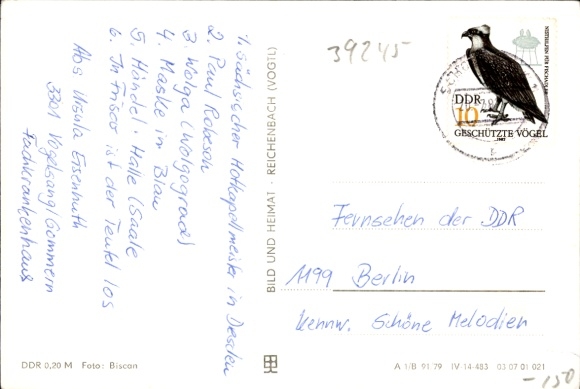 1. Sächsischer Hofkapellmeister in Dresden
2. Paul Robeson
3. Wolga (Wolgograd)
4. Maske in Blau
5. Händel - Halle (Saale
6. In Frisco ist der Teufel los
Abs Ursula Eisenhuth
3301 Vogelsang/Gommern
Fachkrankenhaus
BILD UND HEIMAT · REICHENBACH (VOGTL)
39245
NISTHILFEN FÜR FISCHADLER
DDR
10
GESCHÜTZTE VÖGEL
1982
Fernsehen der DDR
1199 Berlin
Kennw. Schöne Melodien
DDR 0,20 M Foto: Biscan
A 1/B 91/79 IV-14-483 03 07 01 021
-150